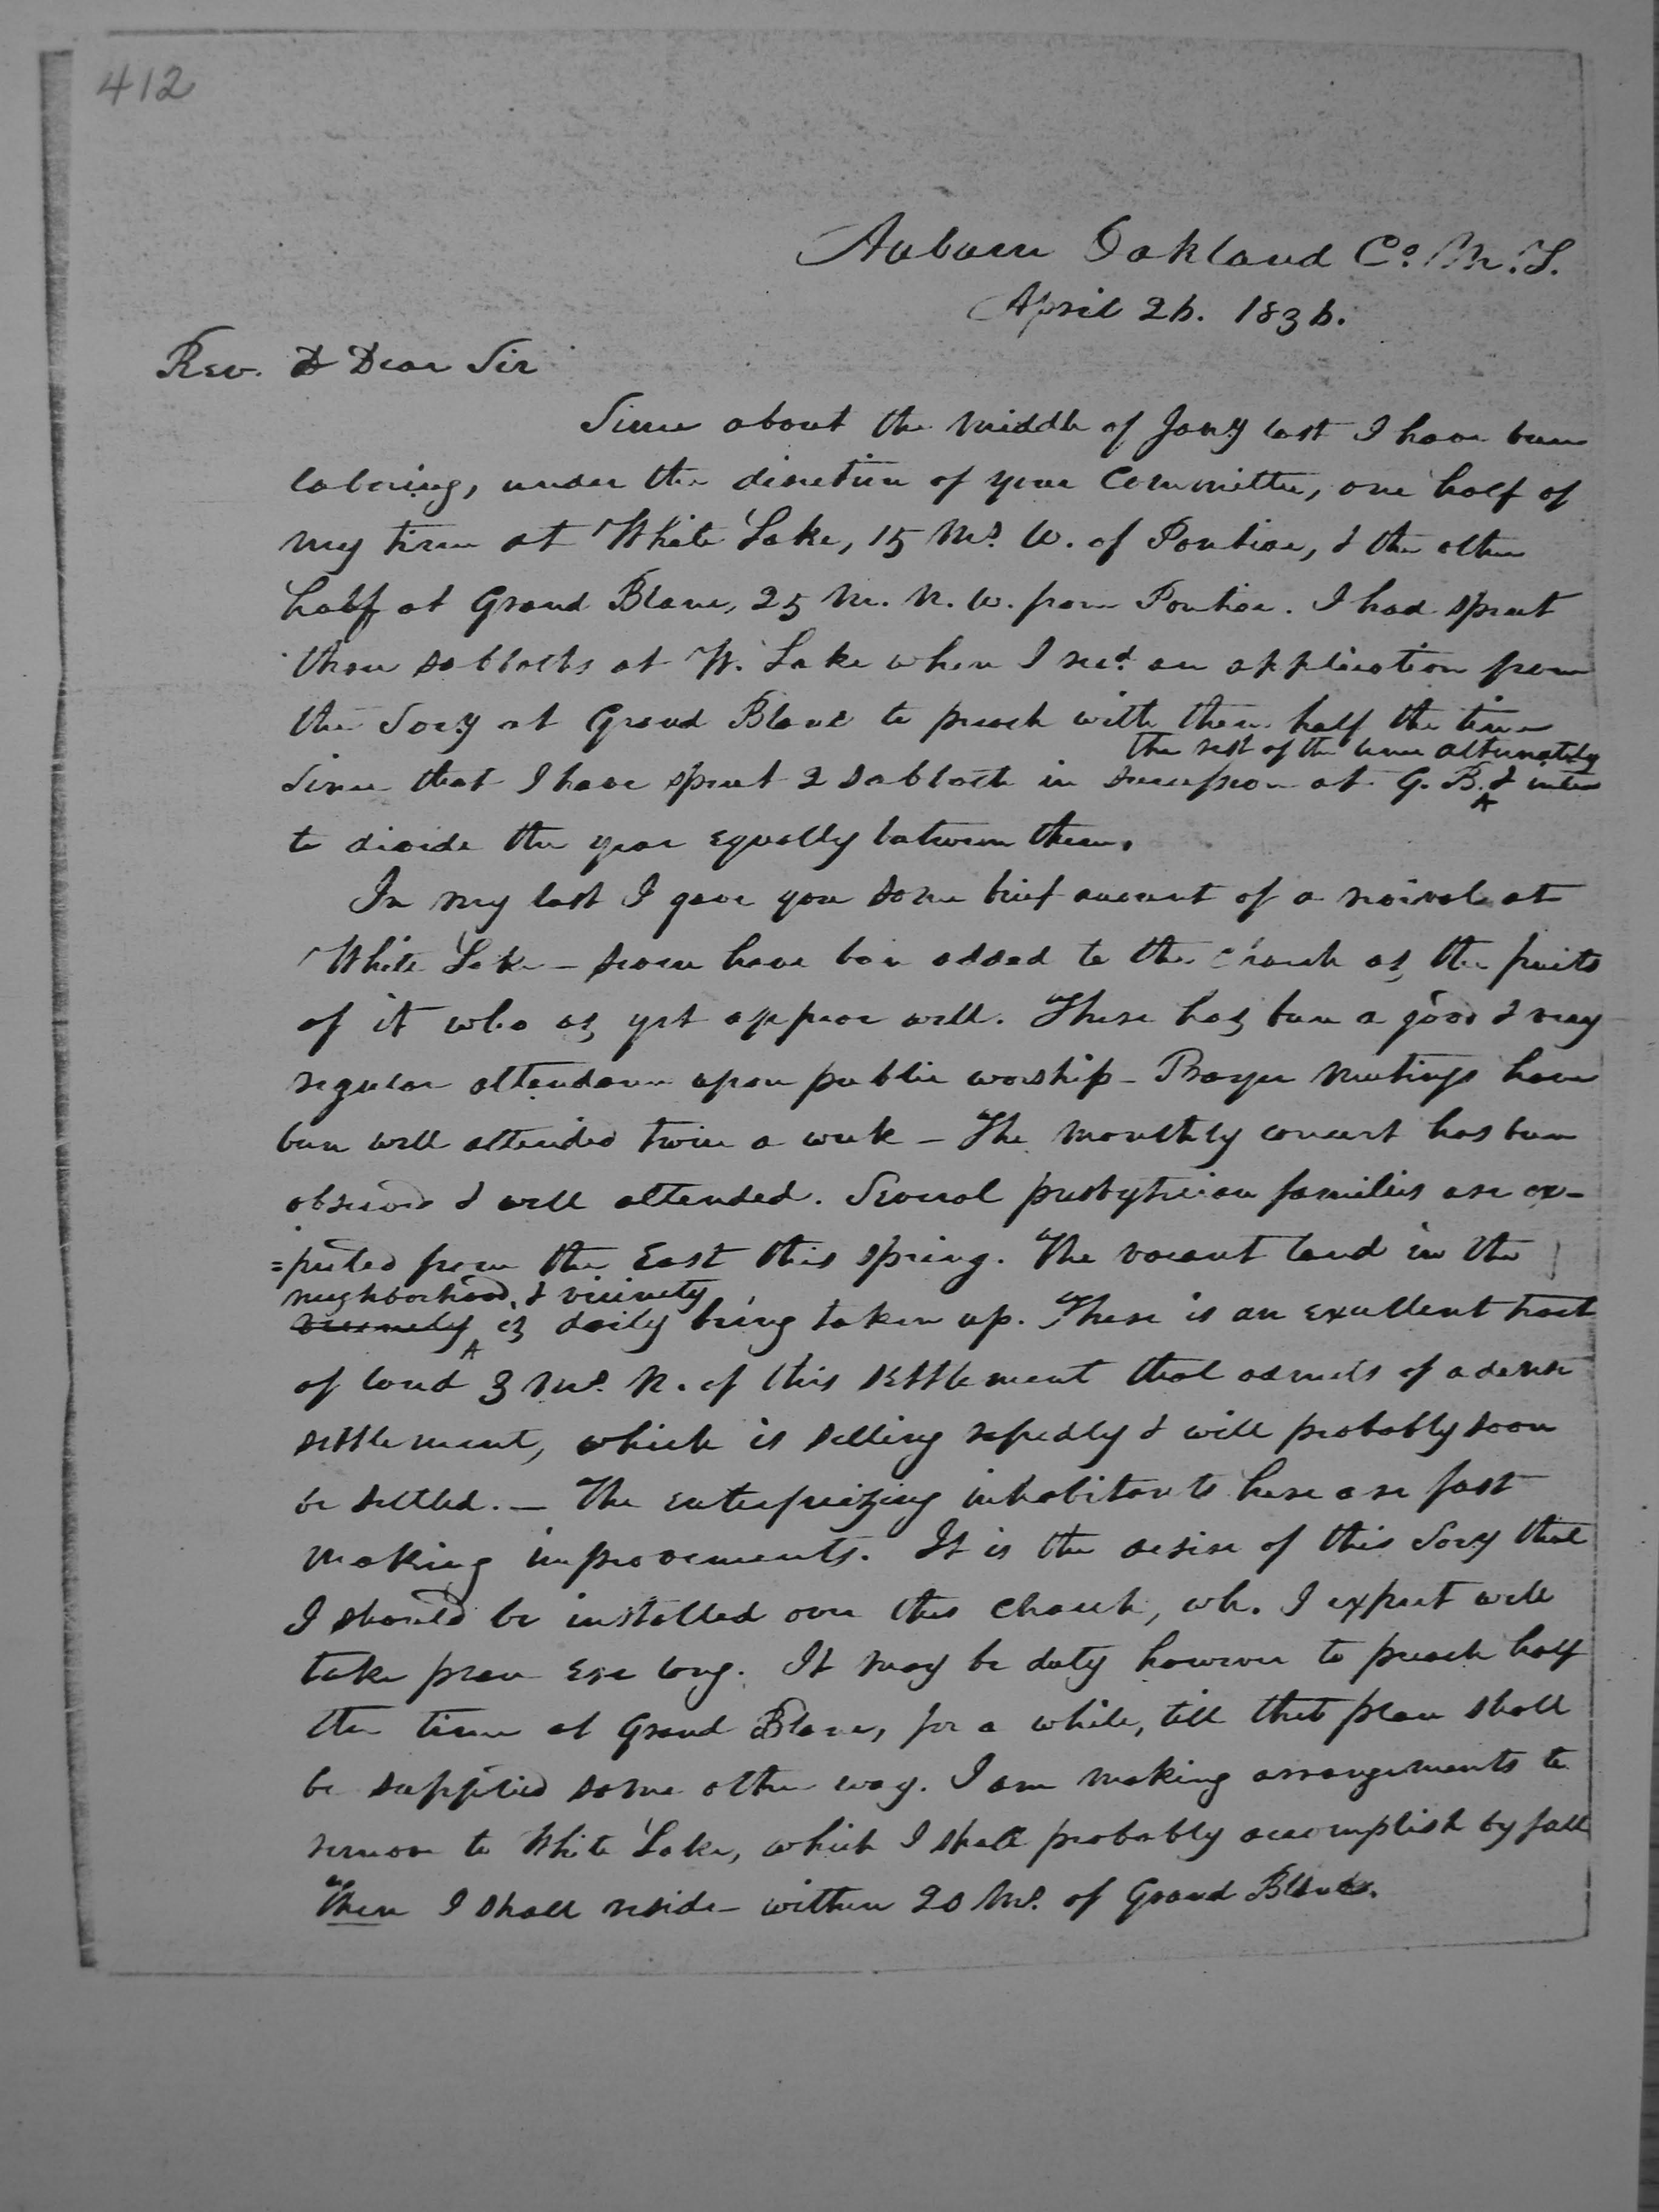 412
Auburn Oakland Co. M.T.
April 26. 1836.
Rev. & Dear Sir
Since about the middle of Jany last I have been
laboring, under the direction of your Committee, one half of
my time at White Lake, 15 Ms. W. of Pontiac, & the other
half at Grand Blanc, 25 M. N. W. from Pontiac. I had spent
three sabbaths at W. Lake when I recd. an application from
the Socy at Grand Blanc to preach with them half the time
the rest of the time alternately
Since that I have spent 2 sabbath in succession at G. B. &
to divide the year equally between them.
In my last I gave you some brief account of a revival at
White Lake – seven have been added to the church as the fruits
of it who as yet appear well. There has been a good & very
regular attendance upon public worship – Prayer meetings have
been well attended twice a week – The monthly concert has been
observed & well attended. Several presbyterian families are ex-
=pected from the East this spring. The vacant land in the
neighborhood, & vicinity
vicinity is daily being taken up. There is an excellent tract
of land 3 Ms. N. of this settlement that admits of a dense
settlement, which is selling rapedly & will probably soon
be settled. – The enterprizing inhabitants here are fast
making improvements. It is the desire of this Socy that
I should be installed over this church, wh. I expect will
take place ere long. It may be duty however to preach half
the time at Grand Blanc, for a while, till that place shall
be supplied some other way. I am making arrangements to
remove to White Lake, which I shall probably accomplish by fall
Then I shall reside within 20 Ms. of Grand Blanc.